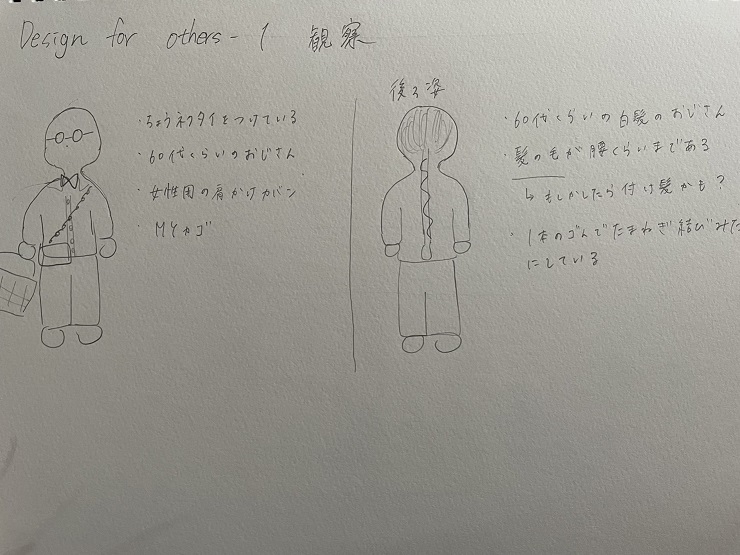 Design for others - 1 観察
・ちょうネクタイをつけている
・60代くらいのおじさん
・女性用の肩かけカバン
・MYカゴ
後ろ姿
・60代くらいの白髪のおじさん
・髪の毛が腰くらいまである
↳もしかしたら付け髪かも？
・1本のゴムでたまねぎ結びみた
にしている